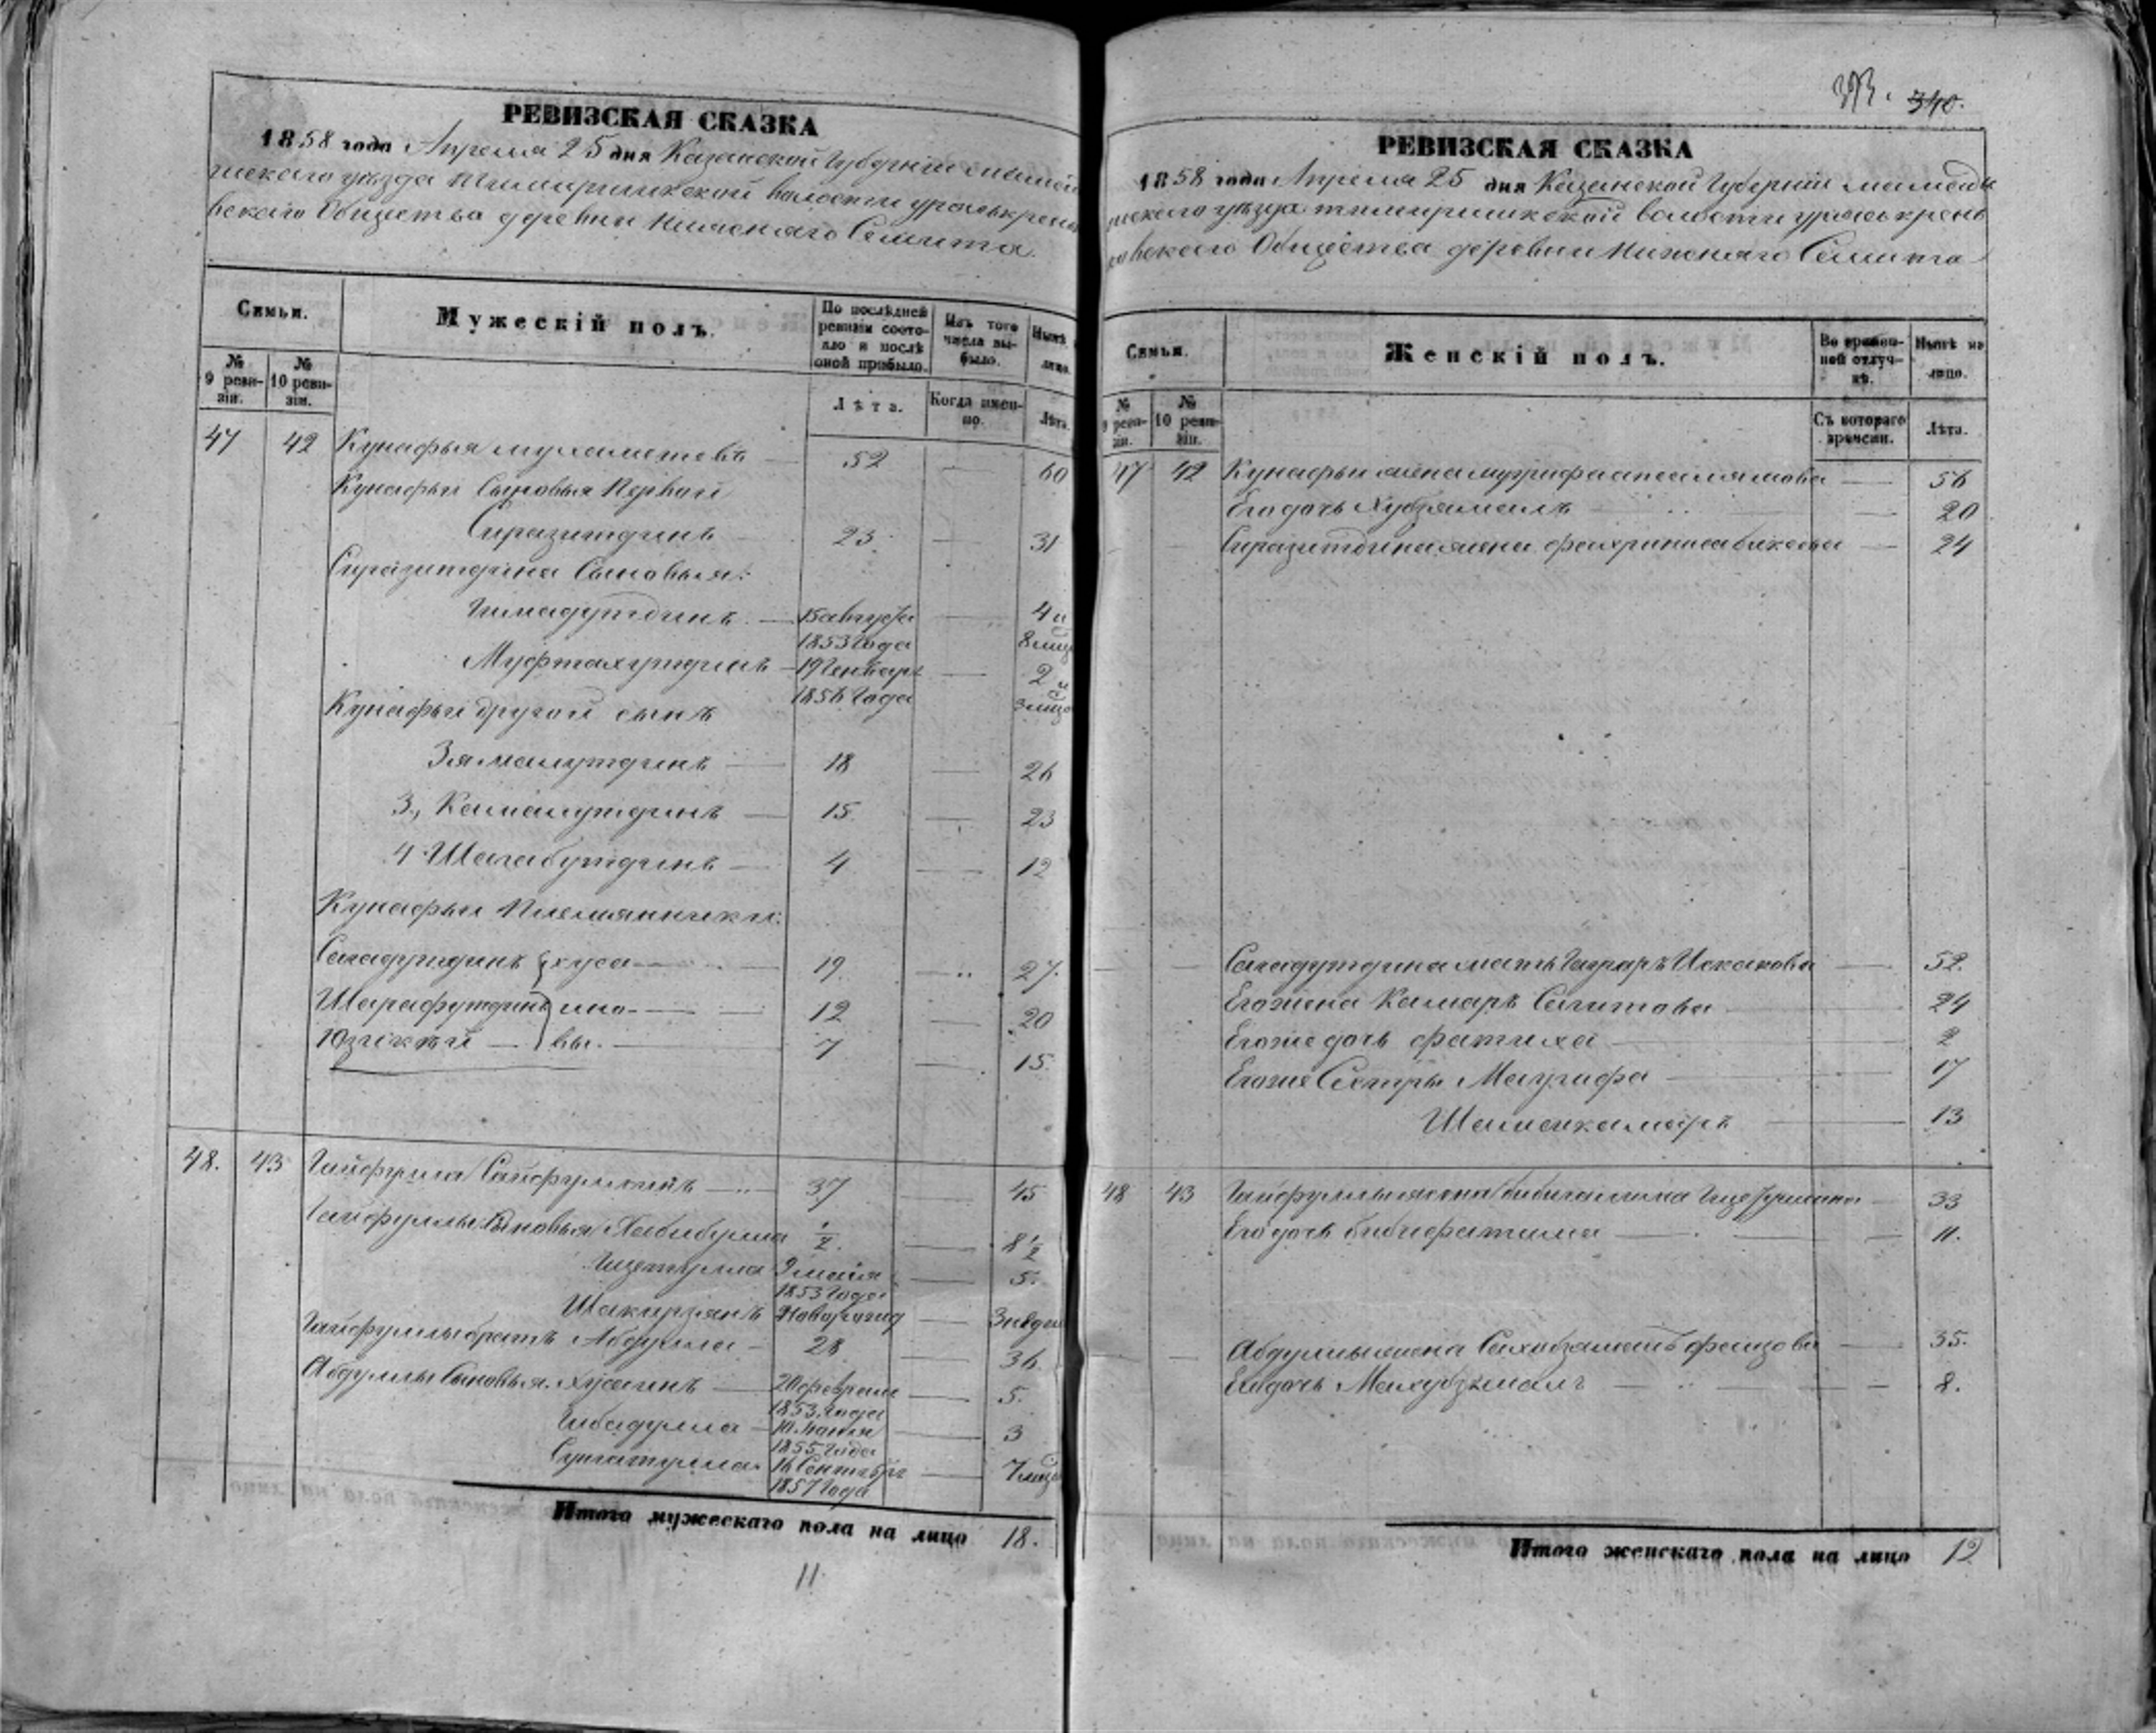 РЕВИЗСКАЯ СКАЗКА
1858 года Апреля 25 дня Казанской Губернии мамады
шскаго уѣзда волости
вскаго Общества деревни Нижняго Семита.
Семьи.
Мужескій полъ.
По послѣдней ревизіи состояло и послѣ оной прибыло.
Изъ того числа выбыло.
Нынѣ лицо.
№ 9 ревизіи.
№ 10 ревизіи.
Лѣта.
Когда именно.
Лѣта.
47 42 Кунафья мухаметовъ 52 — 60
Кунафьи Сыновья Первой
Сиразитдинъ 23 — 31
Сиразитдина Сыновья:
Гимадутдинъ — 15 августа 1853 года — 4 и 8 мѣц
Муфтахутдинъ — 19 Генваря 1856 года — 2 и 3 мѣц
Кунафьи другой сынъ
Зямалутдинъ — 18 — 26
3., Камалутдинъ — 15. — 23
4 Шагабутдинъ — 4 — 12
Кунафьи Племянники:
Сагадутдинъ хуса — 19. — 27.
Шарафутдинъ ино — 12 — 20
вы. — 7 — 15.
48. 43 Гайфулла Сайфуллинъ — 37 — 45
Гайфуллы Сыновья Хабибулла 1/2. — 8 1/2
Гизетулла 9 майя 1853 года — 5.
Шакирзянъ Новорожд — 3 недели
Гайфуллы братъ Абдулла — 28 — 36.
Абдуллы Сыновья. Хусаинъ — 20 февраля 1853. года — 5.
Гибадулла — 1855 года — 3
Сунгатулла. 16 Сентября 1857 года — 7 мѣц
Итого мужескаго пола на лицо 18.
11
393. 340.
РЕВИЗСКАЯ СКАЗКА
1858 года Апреля 25 дня Казанской Губернии мамады
шскаго уѣзда волости
овскаго Общества деревни Нижняго Семита
Семьи.
Женскій полъ.
Во временной отлучкѣ.
Нынѣ на лицо.
№ 9 ревизіи.
№ 10 ревизіи.
Съ котораго времени.
Лѣта.
47 42 Кунафьи жена — 56
Его дочь Хубзямалъ — 20
Сиразитдина жена — 24
Сагадутдина мать Искакова — 52.
Его жена Камаръ Сагитова — 24
Его же дочь фатиха — 2
Его же Сестры Магрифа — 17
Шамсикамаръ — 13
48 43 Гайфуллы жена — 33
Его дочь бибифатима — 11.
Абдуллы жена фаизова — 35.
Его дочь Махубзямалъ — 8.
Итого женскаго пола на лицо 12